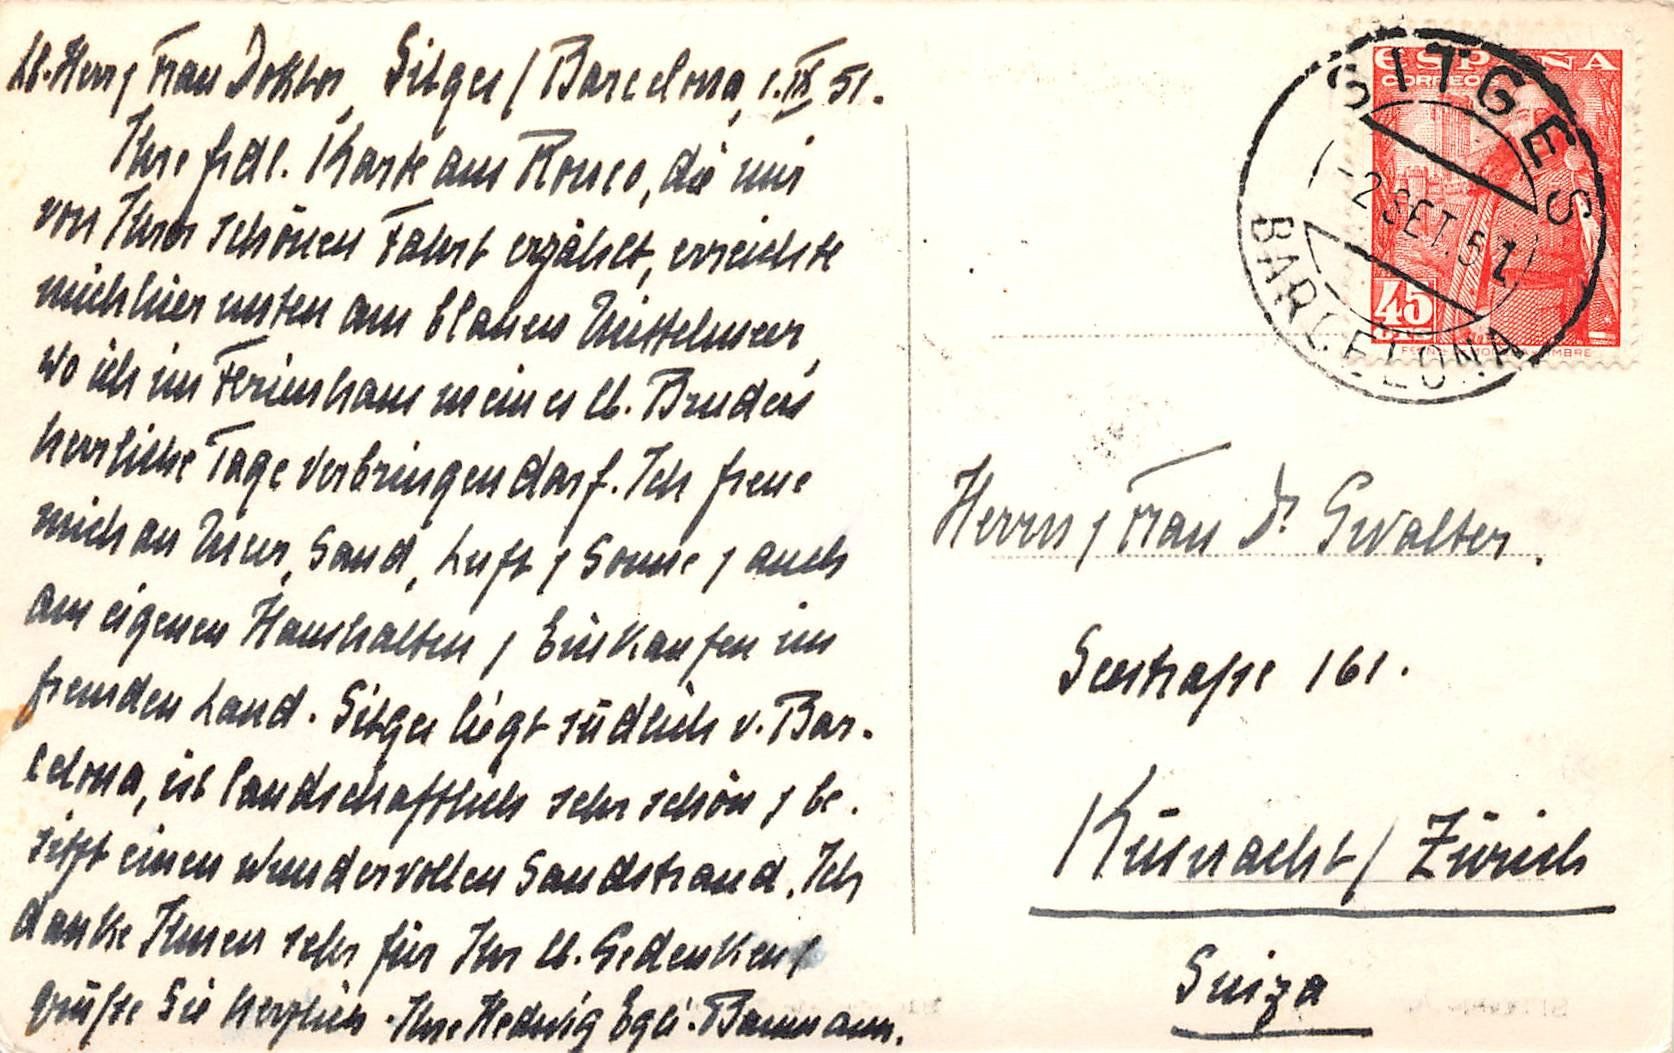 Lb. Herr & Frau Doktor, Sitges / Barcelona, 1. IX 51.
Ihre frdl. Karte aus Ronco, die mir
von Ihrer schönen Fahrt erzählt, erreichte
mich hier unten am blauen Mittelmeer,
wo ich im Ferienhaus meines lb. Bruders
herrliche Tage verbringen darf. Ich freue
mich an Meer, Sand, Luft & Sonne & auch
am eigenen Haushalten & Einkaufen im
fremden Land. Sitges liegt südlich v. Bar-
celona, ist landschaftlich sehr schön & be-
sitzt einen wundervollen Sandstrand. Ich
danke Ihnen sehr für Ihr lb. Gedenken &
grüße Sie herzlich. Ihre Hedwig Egli-Baumann.
ESPAÑA
CORREOS
45
SITGES
-2 SET. 51
BARCELONA
Herrn & Frau Dr Gwalter.
Seestraße 161.
Küsnacht / Zürich
Suiza